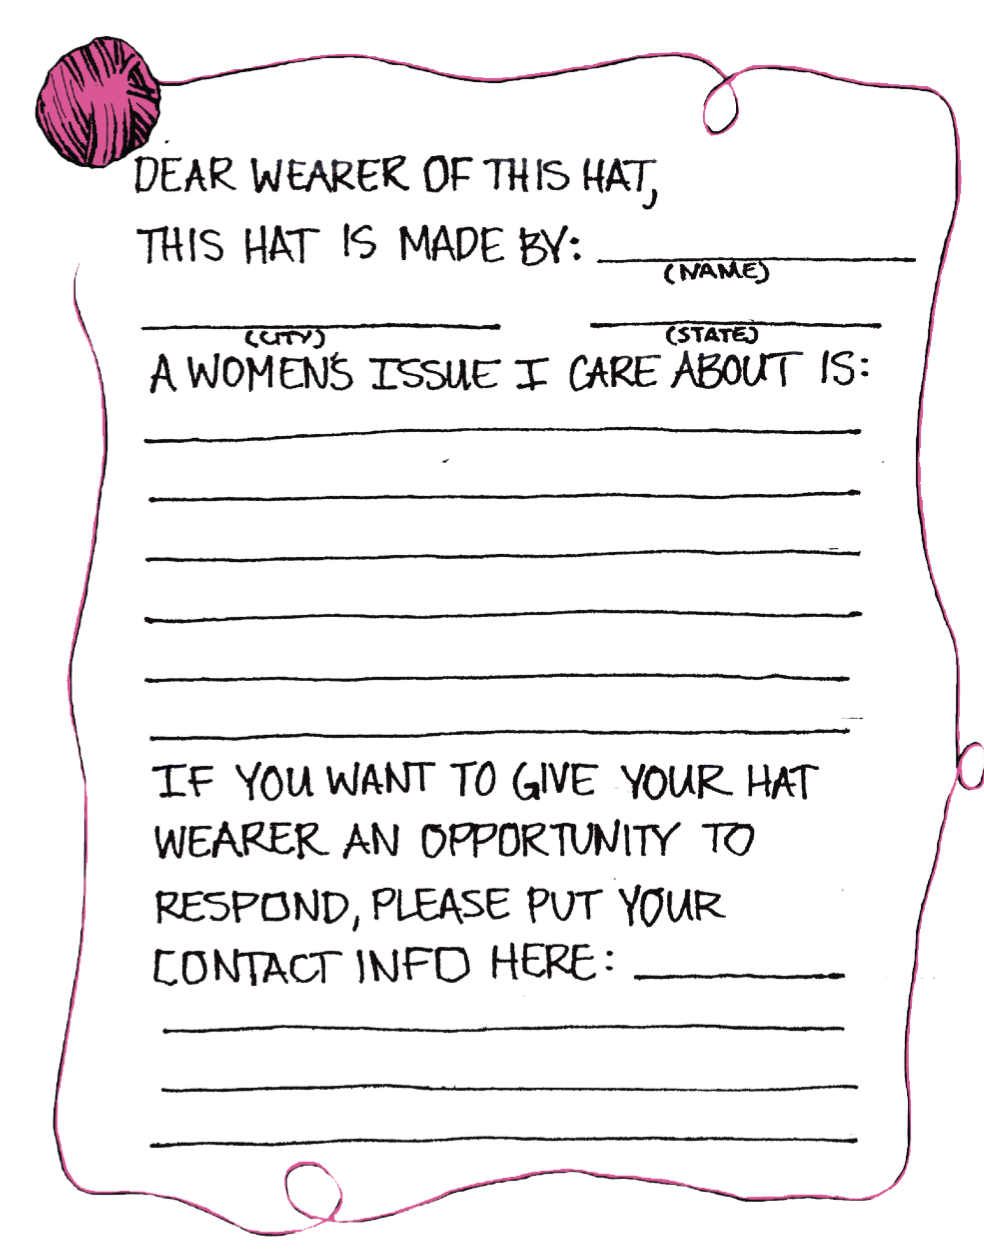 DEAR WEARER OF THIS HAT,
THIS HAT IS MADE BY:
(NAME)
(CITY) (STATE)
A WOMEN'S ISSUE I CARE ABOUT IS:
IF YOU WANT TO GIVE YOUR HAT
WEARER AN OPPORTUNITY TO
RESPOND, PLEASE PUT YOUR
CONTACT INFO HERE: